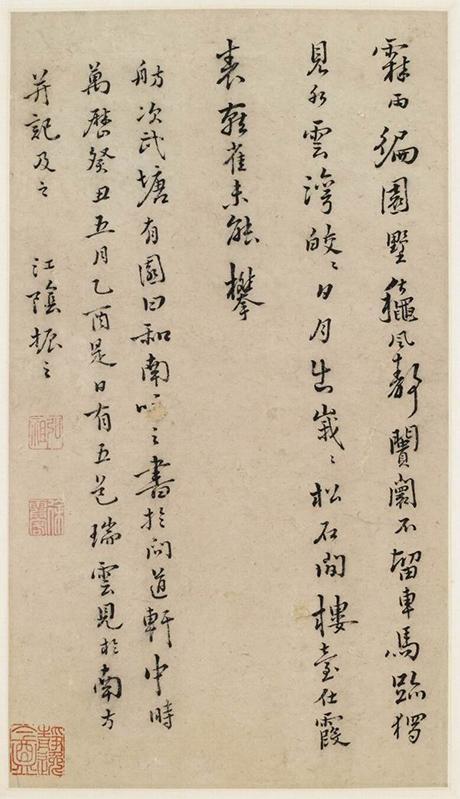 霖雨徧園墅風靜闠闤不留車馬跡獨
見水雲灣皎〻日月出峩〻松石間樓臺仕霞
表雀未能攀
舫次武塘有園曰和南吟之書於問道軒中時
萬曆癸丑五月乙酉是日有五色瑞雲見於南方
并記及之 江陰振之